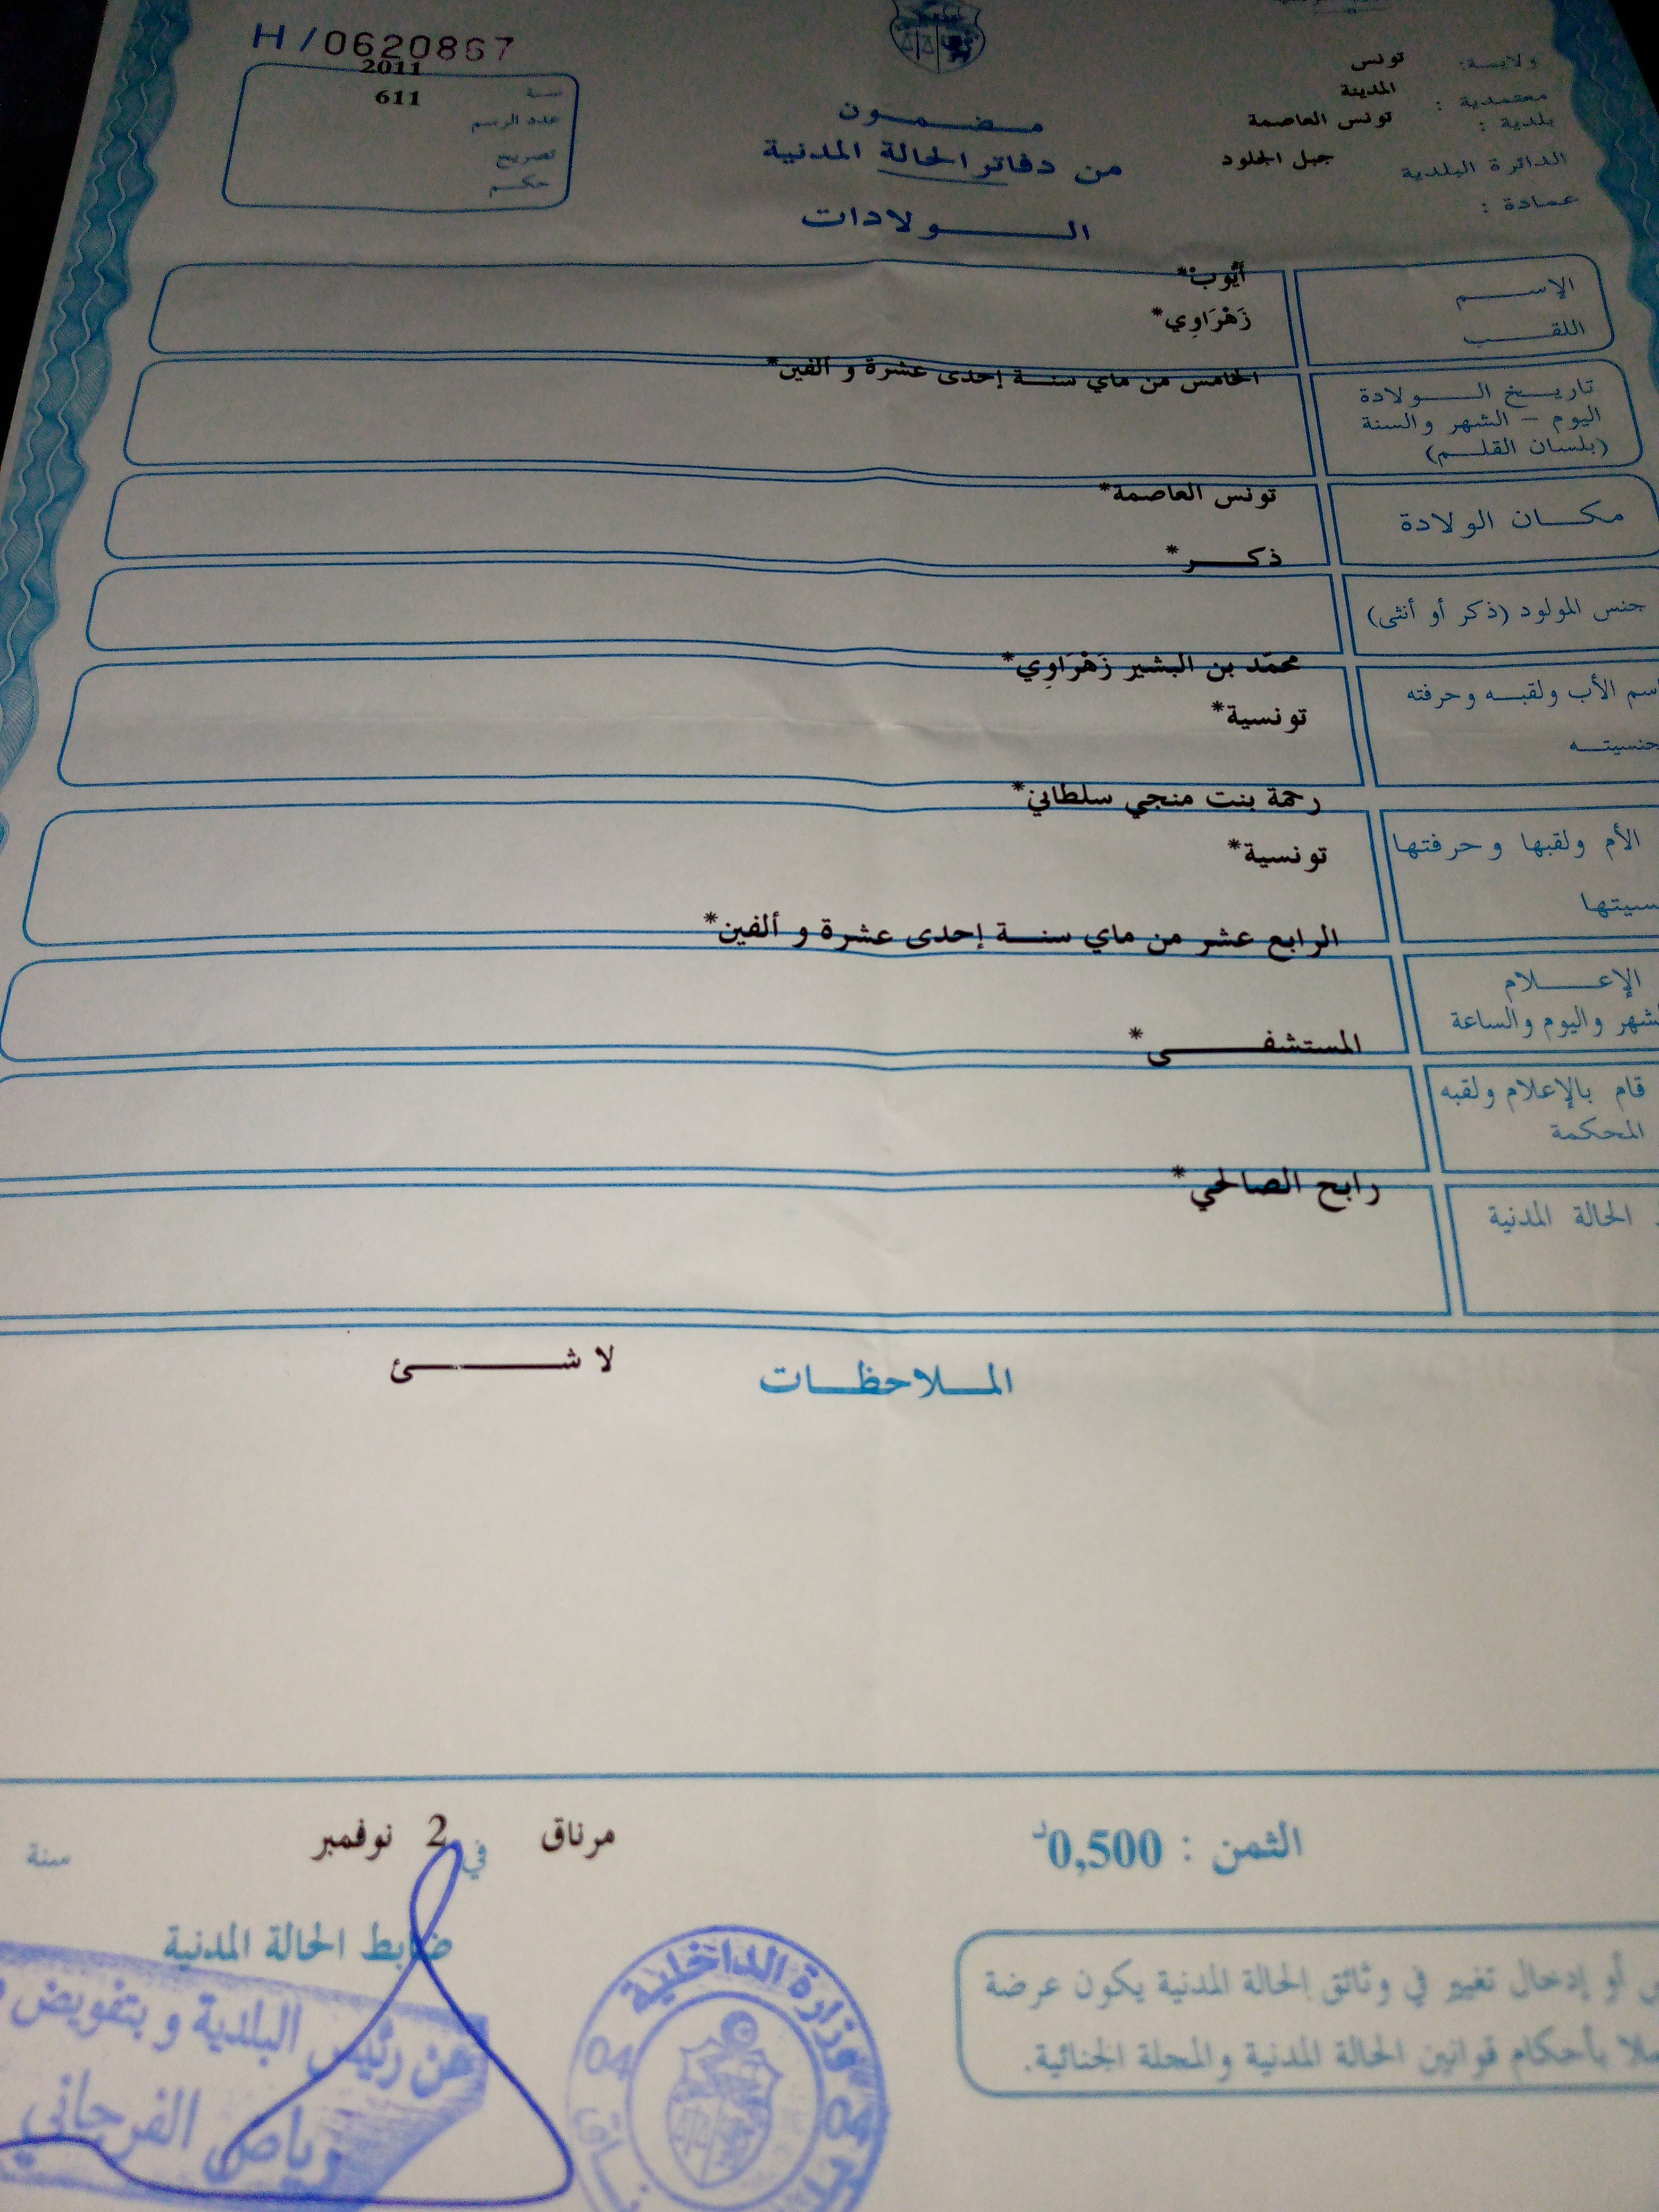 H/0620867
2011
611
سنة
عدد الرسم
تصريح
حكم
ولاية: تونس
معتمدية: المدينة
بلدية: تونس العاصمة
الدائرة البلدية جبل الجلود
عمادة:
مضمون
من دفاتر الحالة المدنية
الولادات
الإسم أيّوب*
اللقب زَهْرَاوِي*
تاريخ الولادة الخامس من ماي سنة إحدى عشرة و ألفين*
اليوم - الشهر والسنة
(بلسان القلم)
مكان الولادة تونس العاصمة*
جنس المولود (ذكر أو أنثى) ذكر*
اسم الأب ولقبه وحرفته محمّد بن البشير زَهْرَاوِي*
جنسيته تونسية*
الأم ولقبها وحرفتها رحمة بنت منجي سلطاني*
سيتها تونسية*
الإعلام الرابع عشر من ماي سنة إحدى عشرة و ألفين*
لشهر واليوم والساعة
قام بالإعلام ولقبه المستشفى*
المحكمة
الحالة المدنية رابح الصالحي*
الملاحظات لا شئ
الثمن : 0,500د
مرناق في 2 نوفمبر سنة
ضابط الحالة المدنية
عن رئيس البلدية و بتفويض
رياض الفرجاني
وزارة الداخلية
04
04
أو إدخال تغيير في وثائق الحالة المدنية يكون عرضة
بأحكام قوانين الحالة المدنية والمجلة الجنائية.